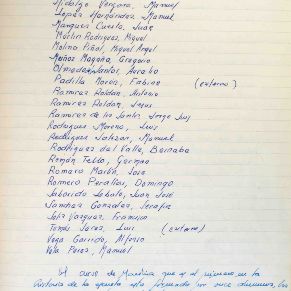 Hidalgo Vergara, Manuel
Lopez Hernández, Manuel
Marquez Cuesta, Juan
Martin Rodriguez, Miguel
Molina Piñal, Miguel Angel
Muñoz Magaña, Gregorio
Olmedo Santos, Aurelio
Padilla Morón, Fabian (externo)
Ramirez Roldan, Antonio
Ramirez Roldan, Jesus
Ramirez de los Santos Jorge Luis
Rodriguez Moreno, Luis
Rodriguez Salazar, Manuel
Rodriguez del Valle, Bernabe
Román Tello, German
Romero Martin, José
Romero Perallos, Domingo
Saborido Lobato, Juan José
Sanchez Gonzalez, Serafin
Solis Vazquez, Francisco
Tomás Jerez, Luis (externo)
Vega Garrido, Alfonso
Vela Perez, Manuel
El curso de que es el número en la
historia de la escuela esta formado por once alumnos, los